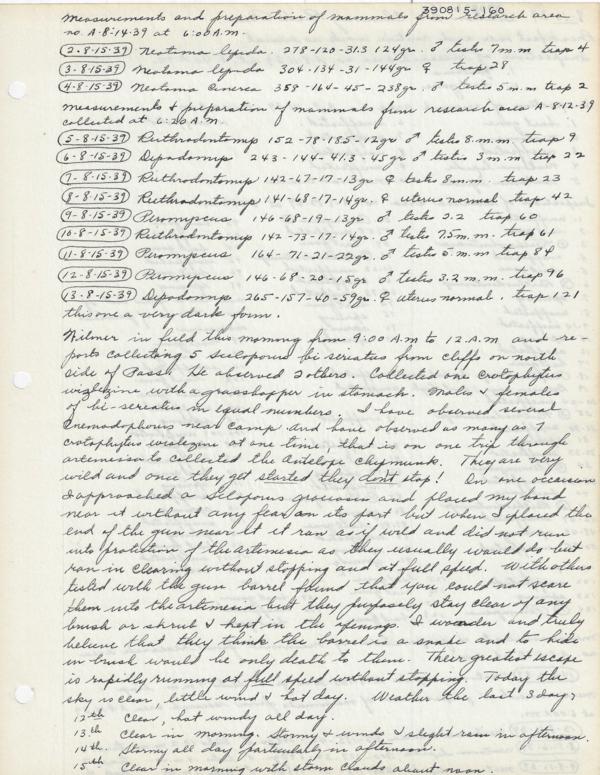 390815-160
Measurements and preparation of mammals from research area
no. A-8-14-39 at 6:00 A.M.
2-8-15-39 Neotoma lepida. 278-120-31.5 124gr. ♂ testis 7m.m trap 4
3-8-15-39 Neotoma lepida 304-134-31-144gr ♀ trap 28
4-8-15-39 Neotoma Cinerea 358-164-45-238gr. ♂ testis 5m.m trap 2
measurements & preparation of mammals from research area A-8-12-39
collected at 6:20 A.M.
5-8-15-39 Reithrodontomys 152-78-18.5-12gr ♂ testis 8.m.m. trap 9
6-8-15-39 Dipodomys 243-144-41.3-45gr ♂ testis 3m.m trap 22
7-8-15-39 Reithrodontomys 142-67-17-13gr ♀ testis 8m.m. trap 23
8-8-15-39 Reithrodontomys 141-68-17-14gr. ♀ uterus normal trap 42
9-8-15-39 Peromyscus 146-68-19-13gr ♂ testis 2.2 trap 60
10-8-15-39 Reithrodontomys 142-73-17-14gr. ♂ testis 7.5m.m. trap 61
11-8-15-39 Peromyscus 164-71-21-22gr ♂ testis 5 m.m trap 84
12-8-15-39 Peromyscus 146-68-20-15gr ♂ testis 3.2 m.m. trap 96
13-8-15-39 Dipodomys 265-157-40-59gr. ♀ uterus normal. trap 121
this one a very dark form.
Wilmer in field this morning from 9:00 A.M to 12.A.M and re-
ports collecting 5 Sceloporus bi seriatus from cliffs on north
side of Pass. He observed 2 others. Collected one Crotophytus
wizlizine with a grasshopper in stomach. Males & females
of bi-seriatus in equal numbers. I have observed several
Cnemodophorus near camp and have observed as many as 7
crotophytus wislezine at one time, that is on one trip through
artemesia to collected the Antelope chipmunk. They are very
wild and once they get started they don't stop! On one occasion
I approached a Scloporus graciosus and placed my hand
near it without any fear on its part but when I placed the
end of the gun near it it ran as if wild and did not run
into protection of the artemesia as they usually would do but
ran in clearing without stopping and at full speed. With others
tested with the gun barrel found that you could not scare
them into the artemesia but they purposely stay clear of any
brush or shrub & kept in the openings. I wonder and truly
believe that they think the barrel is a snake and to hide
in brush would be only death to them. Their greatest escape
is rapidly running at full speed without stopping. Today the
sky is clear, little wind & hot day. Weather the last 3 days;
12th Clear, hot windy all day.
13th Clear in morning. Stormy & winds & slight rain in afternoon.
14th. Stormy all day particularly in afternoon.
15th Clear in morning with storm clouds about noon.